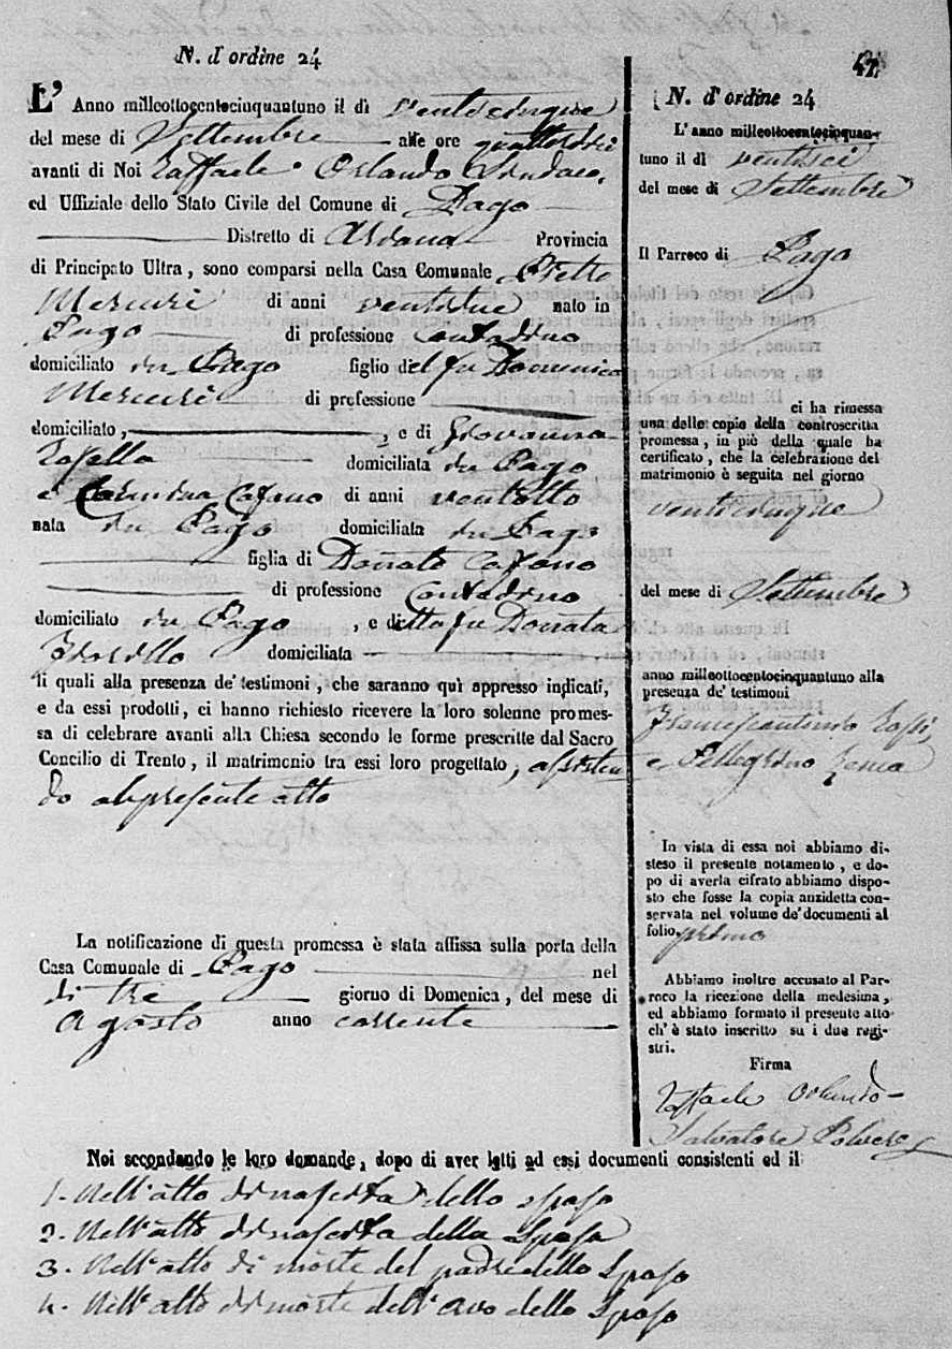 N. d'ordine 24
L' Anno milleottocentocinquantuno il dì venticinque
del mese di Settembre alle ore quattordici
avanti di Noi Raffaele Orlando Sindaco,
ed Uffiziale dello Stato Civile del Comune di Pago
Distretto di Provincia
di Principato Ultra, sono comparsi nella Casa Comunale
Mercuri di anni ventidue nato in
Pago di professione Contadino
domiciliato in Pago figlio del fu Domenico
Mercuri di professione
domiciliato, , e di Giovanna
domiciliata in Pago
e Cafano di anni ventotto
nata in Pago domiciliata in Pago
figlia di Donato Cafano
di professione Contadino
domiciliato in Pago , e di fu Donata
domiciliata
li quali alla presenza de' testimoni, che saranno quì appresso indicati,
e da essi prodotti, ci hanno richiesto ricevere la loro solenne promes-
sa di celebrare avanti alla Chiesa secondo le forme prescritte dal Sacro
Concilio di Trento, il matrimonio tra essi loro progettato, assisten
do al presente atto
La notificazione di questa promessa è stata affissa sulla porta della
Casa Comunale di Pago nel
dì tre giorno di Domenica, del mese di
Agosto anno corrente
47
N. d'ordine 24
L'anno milleottocentocinquan-
tuno il dì ventisei
del mese di Settembre
Il Parroco di Pago
ci ha rimessa
una delle copie della controscritta
promessa, in piè della quale ha
certificato, che la celebrazione del
matrimonio è seguita nel giorno
venticinque
del mese di Settembre
anno milleottocentocinquantuno alla
presenza de' testimoni
Francescantonio
e Pellegrino Zenca
In vista di essa noi abbiamo di-
steso il presente notamento, e do-
po di averla cifrato abbiamo dispo-
sto che fosse la copia anzidetta con-
servata nel volume de' documenti al
folio primo
Abbiamo inoltre accusato al Par-
roco la ricezione della medesima,
ed abbiamo formato il presente atto
ch' è stato inscritto su i due regi-
stri.
Firma
Raffaele Orlando
Salvatore
Noi secondando le loro domande, dopo di aver letti ad essi documenti consistenti ed il
1. Nell'atto di nascita dello sposo
2. Nell'atto di nascita della Sposa
3. Nell'atto di morte del padre dello Sposo
4. Nell'atto di morte dell'avo dello Sposo